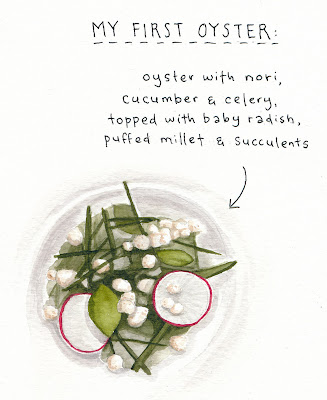 MY FIRST OYSTER:
oyster with nori,
cucumber & celery,
topped with baby radish,
puffed millet & succulents